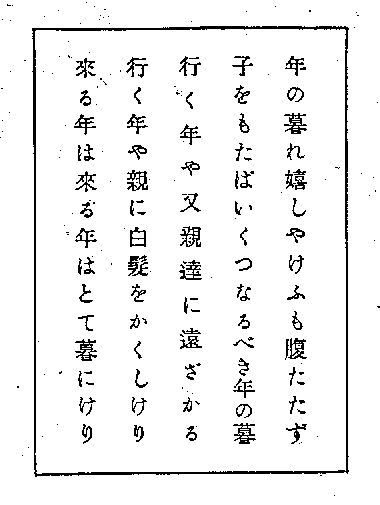 年の暮れ嬉しやけふも腹たたず
子をもたばいくつなるべき年の暮
行く年や又親達に遠ざかる
行く年や親に白髪をかくしけり
來る年は來る年はとて暮にけり